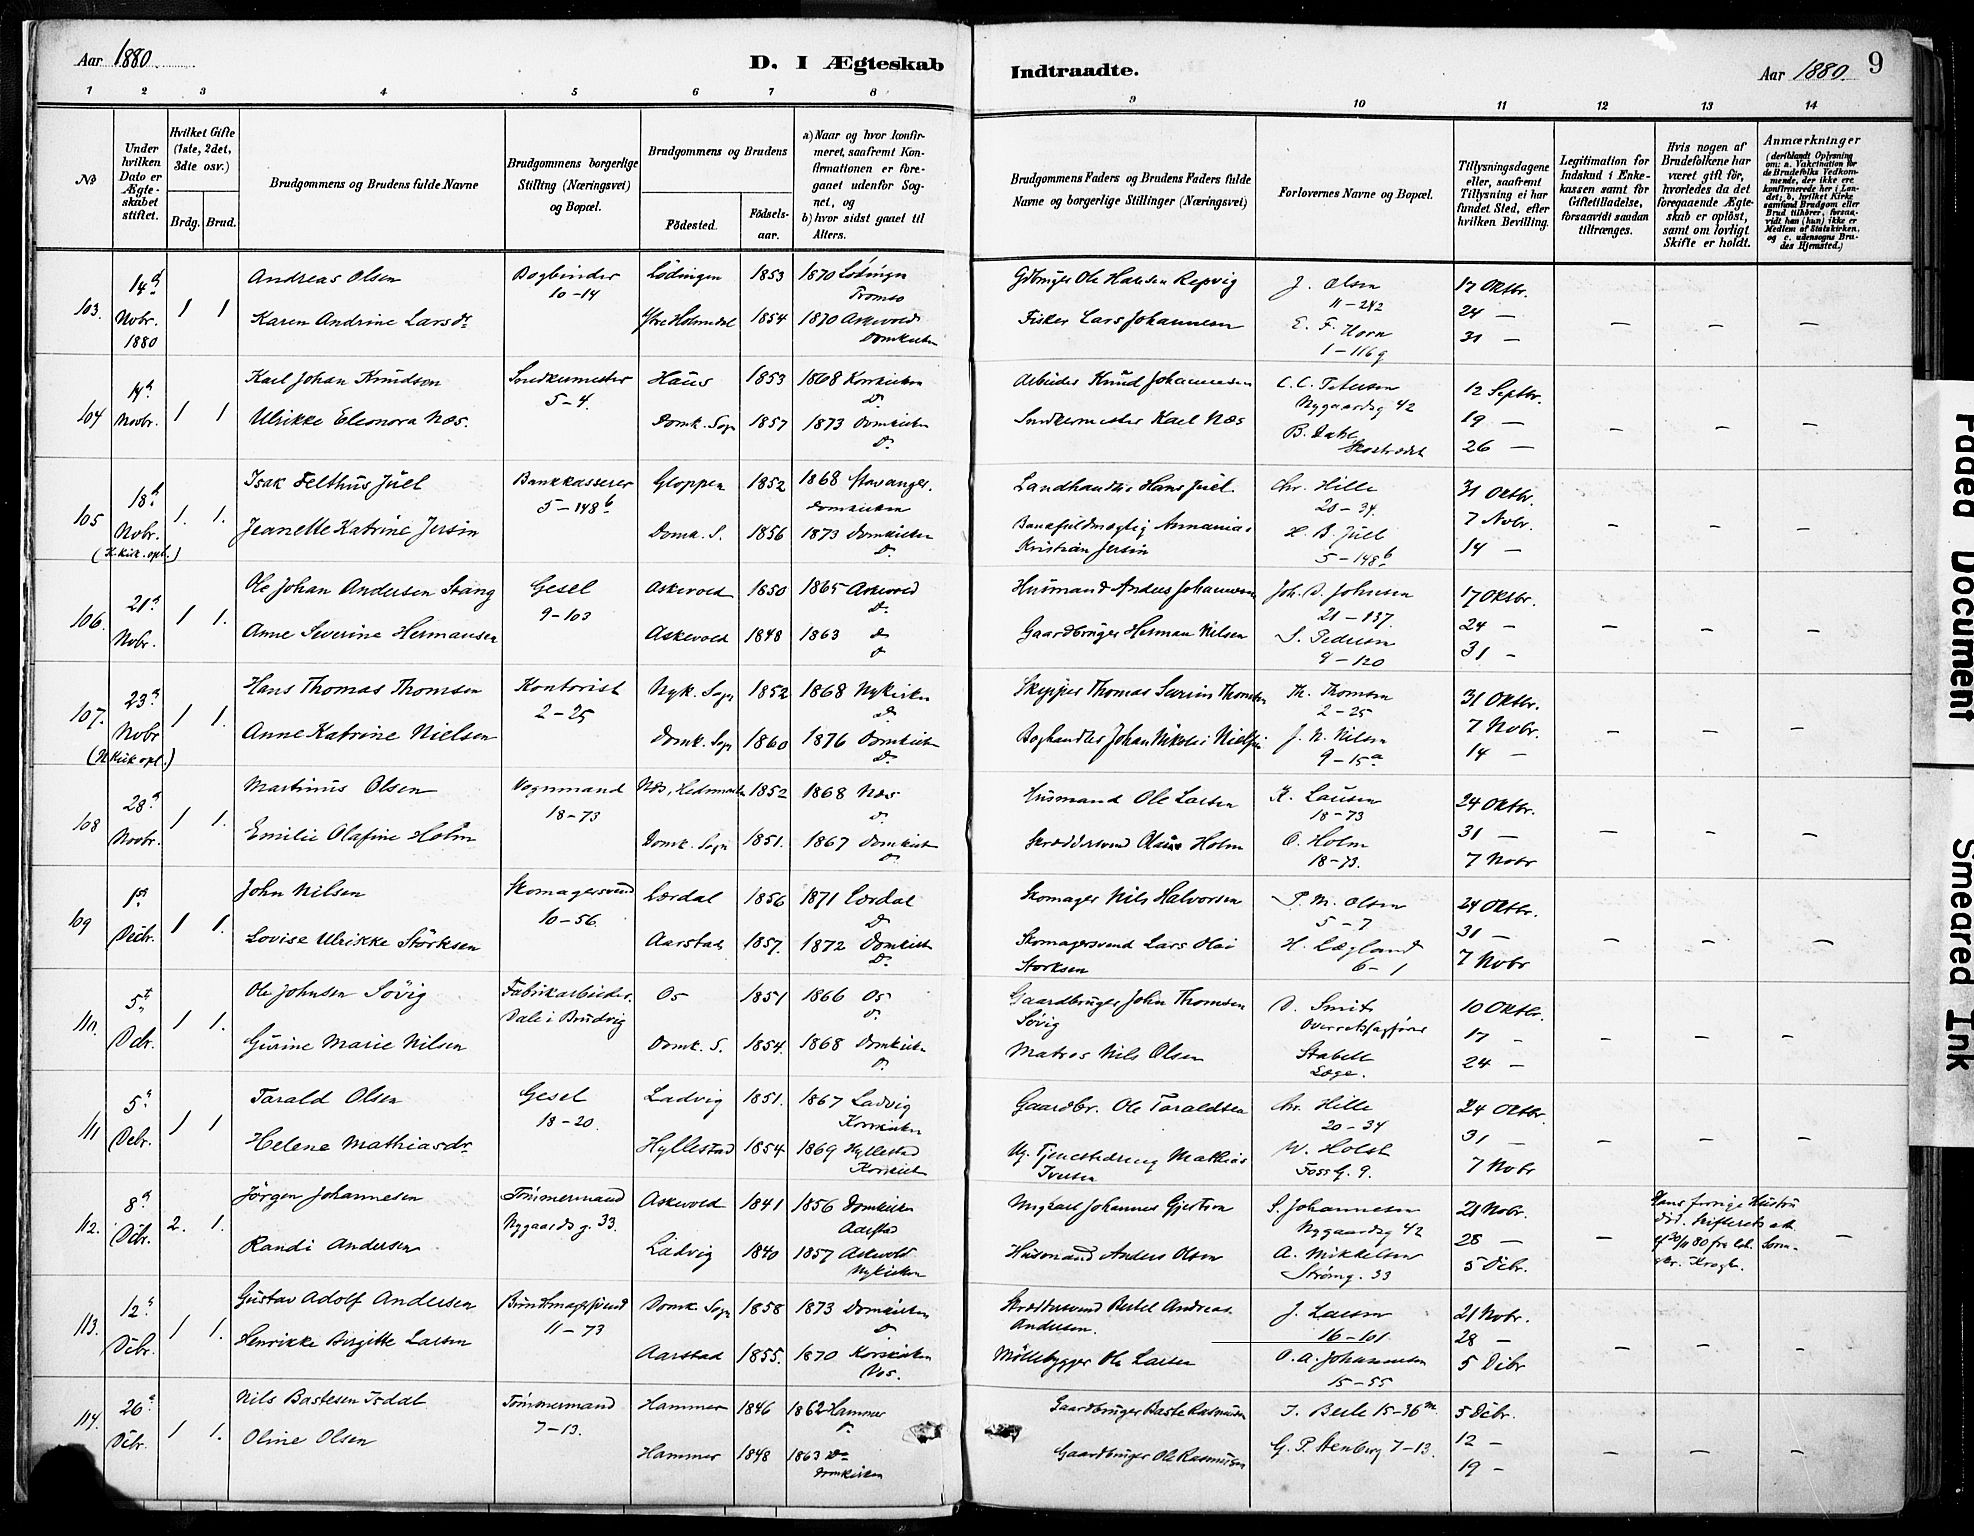 Aar 1880.
D. I Ægteskab
Indtraadte.
Aar 1880. 9
1 2 3 4 5 6 7 8 9 10 11 12 13 14
No
Under hvilken Dato er Ægteskabet stiftet.
Hvilket Gifte (1ste, 2det, 3die osv.)
Brdg. Brud.
Brudgommens og Brudens fulde Navne
Brudgommens borgerlige Stilling (Næringsvei) og Bopæl.
Brudgommens og Brudens
Fødested.
Fødselsaar.
a) Naar og hvor konfirmeret, saafremt Konfirmationen er foregaaet udenfor Sognet, og
b) hvor sidst gaaet til Alters.
Brudgommens Faders og Brudens Faders fulde Navne og borgerlige Stillinger (Næringsvei)
Forlovernes Navne og Bopæl.
Tillysningsdagene eller, saafremt Tillysning ei har fundet Sted, efter hvilken Bevilling.
Legitimation for Indskud i Enkekassen samt for Giftetilladelse, forsaavidt saadan tiltrænges.
Hvis nogen af Brudefolkene har været gift før, hvorledes da det foregaaende Ægteskab er opløst, samt om lovligt Skifte er holdt.
Anmærkninger
(deriblandt Oplysning om: a. Vakcination for de Brudefolks Vedkommende, der ikke ere konfirmerede her i Landet; b. hvilket Kirkesamfund Brudgom eller Brud tilhører, forsaavidt han (hun) ikke er Medlem af Statskirken, og c. udensogns Brudes Hjemsted.)
103. 14d Nobr. 1880 1 1 Andreas Olsen Bogbinder 10-14 Lødingen 1853 1870 Lødingen Tromsø Gdbruger Ole Hansen Repvig J. Olsen 11-242 17 Oktbr.
Karen Andrine Larsdr. Ytre Holmedal 1854 1870 Askevold Domkirken Fisker Lars Johannesen E. F. Horn 1-116g 24 — 31 — — — —
104 14d Novbr. 1 1 Karl Johan Knudsen Snedkermester 5-4. Haus 1853 1868 Korskirken D. Arbeider Knud Johannesen C. C. Petersen Nygaardsg 42 12 Septbr.
Ulrikke Eleonora Næs. Domk. Sogn 1857 1873 Domkirken D. Snedkermester Karl Næs B. Dahl Skostrædet 19 — 26 — — — —
105 18d Nobr. (H. Kirk. opl.) 1. 1. Isak Felthus Juel Bankkasserer 5-148b Gloppen 1852 1868 Stavanger. Domkirken Landhandler Hans Juel Chr. Hille 20-34. 31 Oktbr.
Jeanette Katrine Jersin Domk. S. 1856 1873 Domkirken D. Bankfuldmægtig Annanias Kristian Jersin H. B. Juel 5-148b 7 Nobr. 14 — — — —
106. 21d Nobr. 1 1. Ole Johan Andersen Stang Gesel 9-103 Askevold 1850 1865 Askevold D. Husmand Anders Johannesen Joh. A. Johnsen 21-137. 17 Oktbr.
Anne Severine Hermansen Askevold 1848 1863 D. D. Gaardbruger Herman Nilsen S. Pedersen 9-120 24 — 31 — — — —
107. 23d Nobr (N. Kirk opl.) 1 1. Hans Thomas Thomsen Kontorist 2-25 Nyk. Sogn 1852 1868 Nykirken D. Skipper Thomas Severin Thomsen Th. Thomsen 2-25 31 Oktbr.
Anne Katrine Nielsen Domk. Sogn 1860 1876 Domkirken D. Boghandler Johan Nikolai Nielsen J. N. Nilsen 9-15a 7 Nobr. 14 — — — —
108 28d Novbr. 1 1. Martinus Olsen Vognmand 18-73 Næs, Hedemarken 1852 1868 Næs D. Husmand Ole Larsen K. Lausen 18-73 24 Oktbr.
Emilie Olafine Holm Domk. Sogn 1851. 1867 Domkirken D. Skræddersvend Olaus Holm O. Holm 18-73. 31 — 7 Nobr — — —
109 1ste Decbr. 1 1. John Nilsen Skomagersvend 10-56 Lærdal 1856 1871 Lærdal D. Skomager Nils Halvorsen P. M. Olsen 5-7 24 Oktbr.
Lovise Ulrikke Störksen Aarstad 1857. 1872 Domkirken D. Skomagersvend Lars Olai Storksen H. Lægland 6-1 31 — 7 Nobr — — —
110. 5t Debr. 1 1 Ole Johnsen Søvig Fabrikarbeider. Dale i Bruvig Os 1851 1866 Os D. Gaardbruger John Thomsen Søvig D. Smith Overretssagfører 10 Oktbr.
Gurine Marie Nilsen Domk. S. 1854. 1868 Domkirken D. Matros Nils Olsen Stabell Læge. 17 — 24 — — — —
111 5d Debr. 1 1 Tarald Olsen Gesel 18-20. Ladvig 1851. 1867 Ladvig Korskirken Gaardbr. Ole Taraldsen Chr. Hille 20-34 24 Oktbr.
Helene Mathiasdr. Hyllestad 1854 1869 Hyllestad Korskirken Ug. Tjenestedreng Mathias Iversen W. Holst Fossg. 9. 31 — 7 Nobr — — —
112. 8d Debr. 2. 1. Jörgen Johannesen Tömmermand Nygaardsg. 33. Askevold 1841 1856 Domkirken Aarstad Ungkarl Johannes Gjertsen S. Johannesen Nygaardsg 42 21 Nobr. Hans forrige Hustru død. Skifteretsatt. af 20/11 80 fra
Randi Andersen Ladvig 1840 1857 Askvold Nykirken Husmand Anders Olsen A. Mikkelsen Strømg. 33 28 — 5 Debr. — —
113. 12d Debr. 1 1. Gustav Adolf Andersen Buntmagersvend 11-73 Domk. Sogn 1858 1873 Domkirken D. Skræddersvend Bertel Andreas Andersen. J. Larsen 16-101 21 Nobr.
Henrikke Birgitte Larsen Aarstad 1855. 1870 Korskirken Vos. Møllebygger Ole Larsen O. A. Johannesen 15-55 28 — 5 Debr — — —
114. 26d Debr. 1 1. Nils Bastesen Isdal Tömmermand 7-13. Hammer 1846 1862 Hammer D. Gaardbruger Baste Rasmussen T. Beste 15-36m 5 Debr.
Oline Olsen Hammer 1848 1863 D. Domkirken Gaardbruger Ole Rasmussen G. P. Stenberg 7-13. 12 — 19 — — — —
Faded Document
Smeared Ink